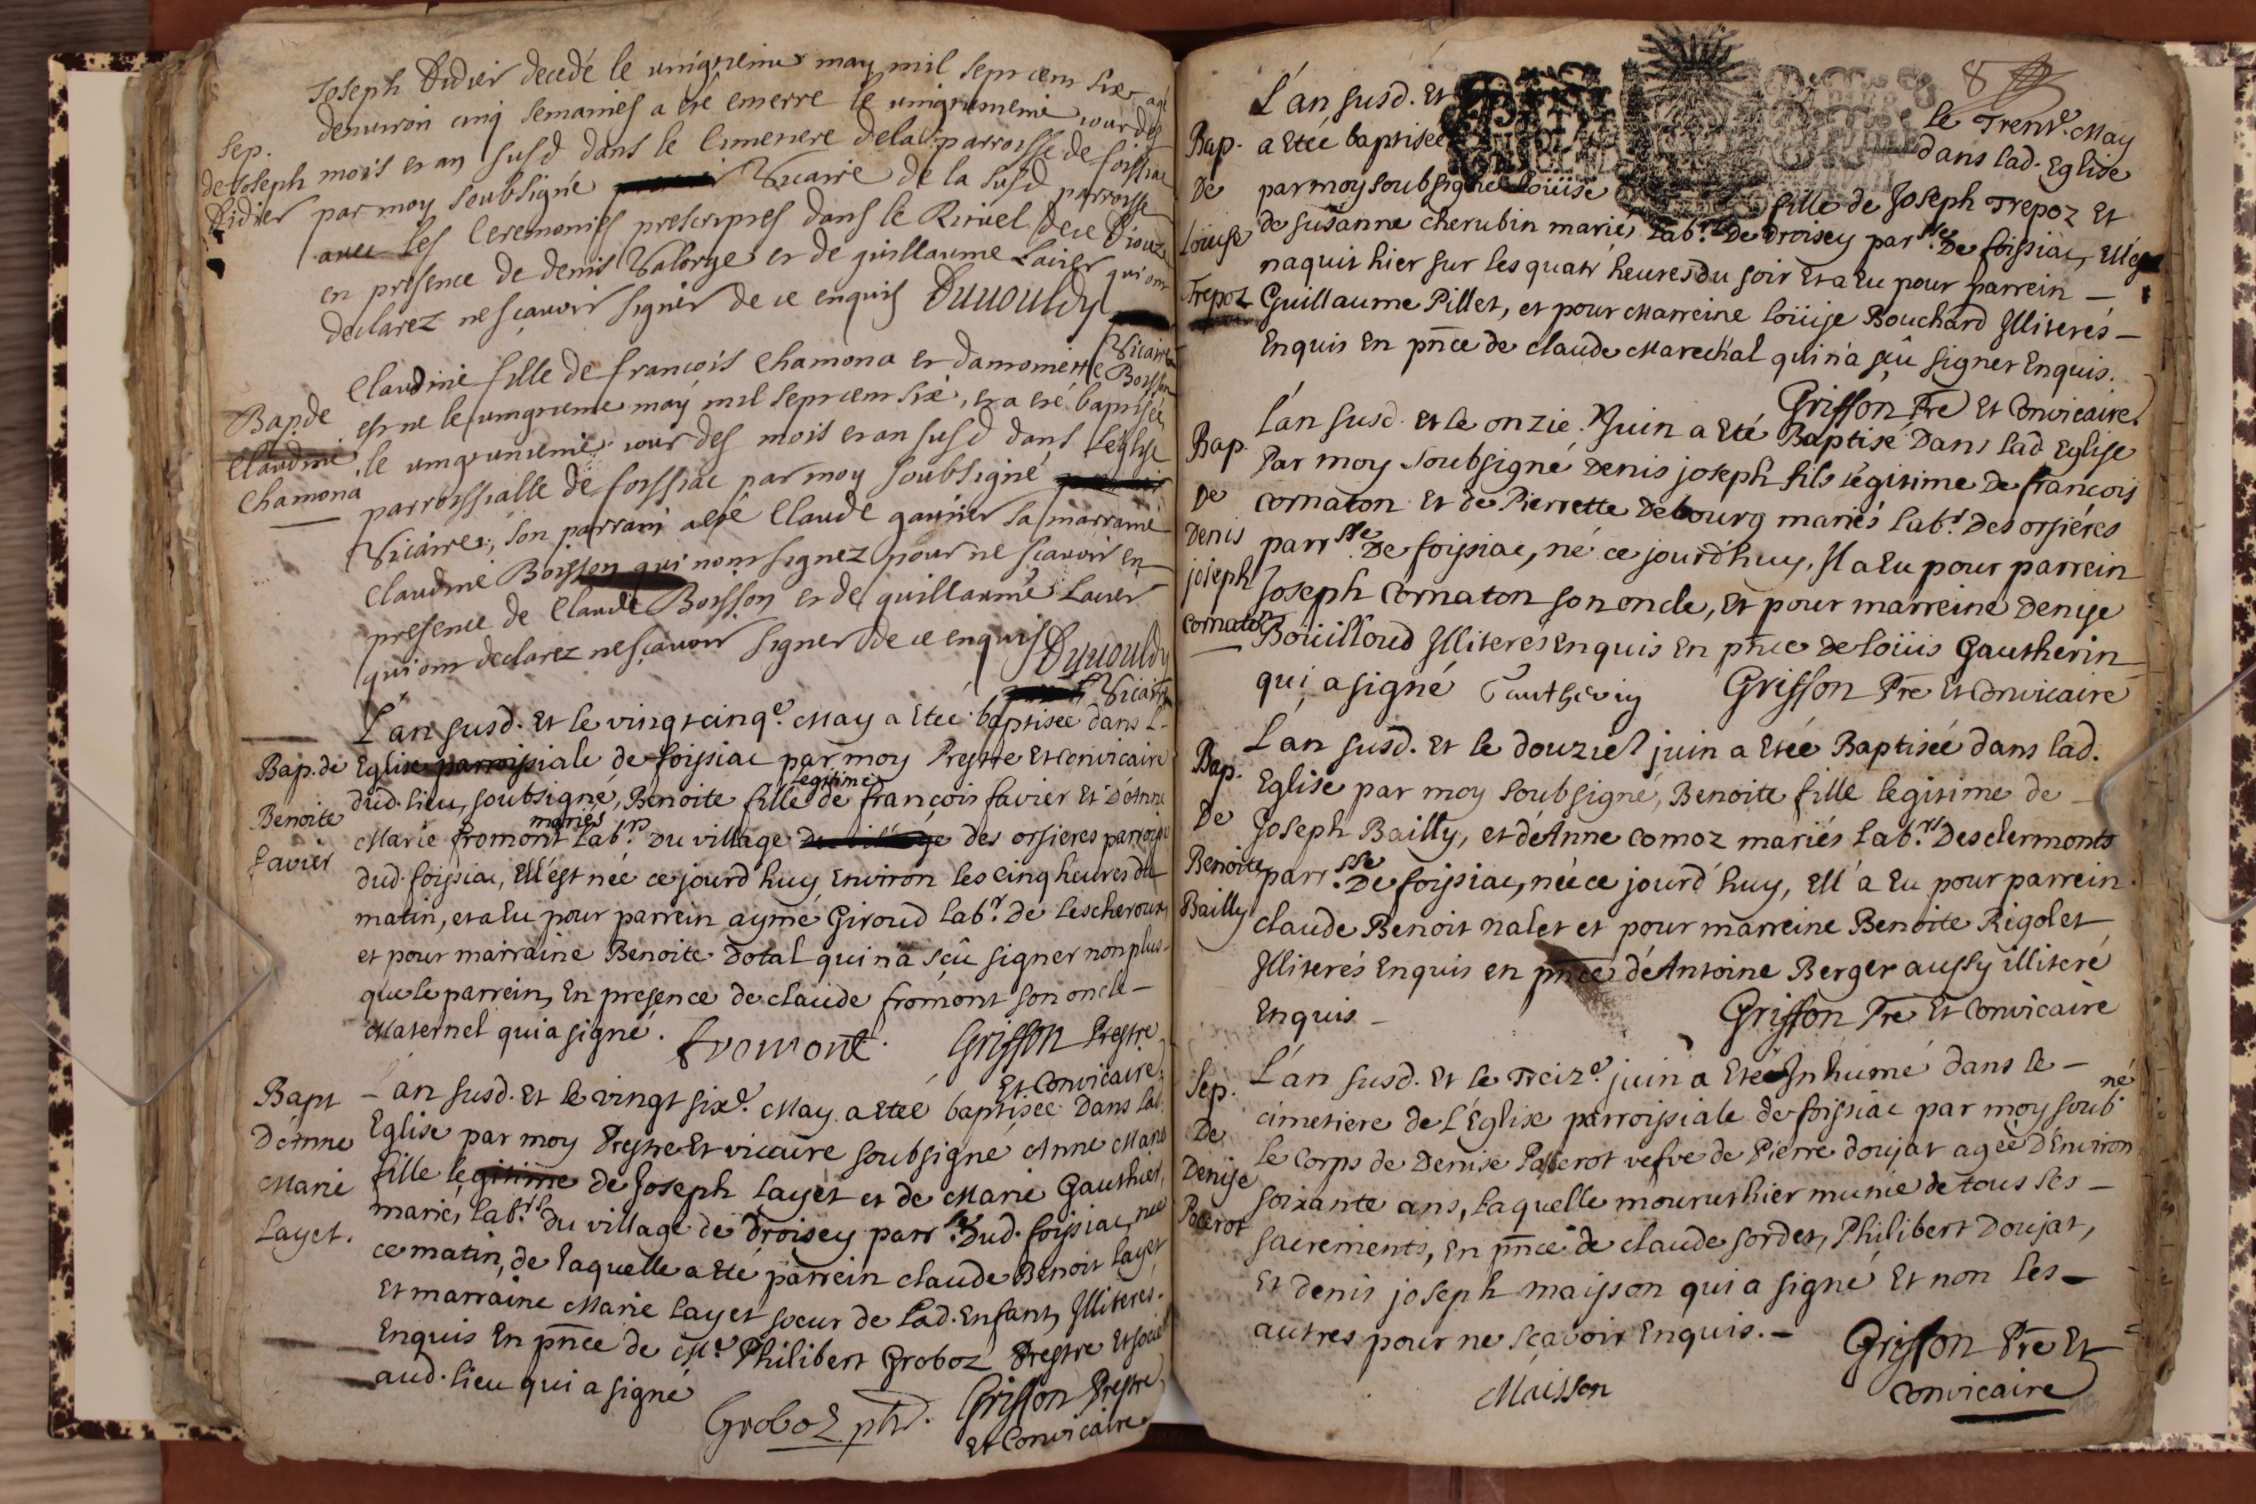 Joseph Didier decedé le vingtieme may mil sept cent six agé
denuiron cinq semaines a eté enterré le vingtunieme iour des
Sep.
de Joseph
Didier
mois et an susd dans le cimetiere de la parroisse de foissiac
par moy soubsigné Vicaire de la susd parroisse
auec les ceremonies prescriptes dans le Rituel de ce Dioceze
en presence de denis Valorge et de guillaume Lacier qui ont
declarez ne sçauoir signer de ce enquis Duuouldy
Vicaire
Bap. de
Claudine
Chamona
Claudine fille de francois Chamona et damoinette Boisson
est ne le vingtieme may mil sept cent six, et a eté baptisée
le vingtunieme iour des mois et an susd dans leglise
parroissialle de foissiac par moy soubsigné
Vicaire, son parrain a eté Claude garnier sa marraine
Claudine Boisson qui nont signez pour ne scauoir en
presence de Claude Boisson et de guillaume Lacier
qui ont declarez ne sçauoir signer de ce enquis Duuouldy
Vicaire
Bap. de
Benoite
favier
L'an susd. Et le vingt cinq.e May a Etée baptisée dans L'
Eglise parroissiale de foissiac par moy Prestre Et Convicaire
dud. lieu, soubsigné, Benoite fille legitime de françois favier Et D'Anne
Marie fromont mariés Lab.rs Du village des orsieres parroisse
dud. foissiac, Ell'est née ce jourd'huy Environ les cinq heures du
matin, et a Eu pour parrein aymé Giroud lab.r de Lescheroux
et pour marraine Benoite Dotal qui n'a sçû signer non plus
que le parrein, En presence de claude fromont son oncle
Maternel qui a signé.
fromont. Griffon Prestre
Et Convicaire
Bapt
D'Anne
Marie
Layet.
L'an susd. Et le vingt six.e May a Etée baptisée Dans lad.
Eglise par moy Prestre Et vicaire soubsigné Anne Marie
fille legitime de Joseph Layet et de Marie Gauthier,
mariés, lab.rs du village de Droisey parr.sse Dud. foissiac, née
ce matin, de laquelle a Eté parrein claude Benoit layet,
Et marraine Marie Layet soeur de Lad. Enfant, Illiterés.
Enquis En pñce de M.e Philibert Groboz Prestre Et societ
aud. lieu qui a signé
Groboz ptr. Griffon Prestre
Et Convicaire
8
L'an susd. Et le Trent.e May
Bap.
De
Loüise
Trepoz
a Etée baptisée dans lad. Eglise
par moy soubsigné Loüise fille de Joseph Trepoz Et
de susanne cherubin mariés, Lab.rs De Droisey par.sse De foissiac, Elle
naquit hier sur les quatr' heures du soir Et a Eu pour parrein —
Guillaume Pillet, et pour Marreine loüise Bouchard Illiterés —
Enquis En pñce de claude Marechal qui n'a sçû signer Enquis.
Griffon Pre Et Convicaire
Bap.
De
Denis
joseph
Cornaton
L'an susd. Et le onzie. Juin a Eté Baptisé Dans lad Eglise
Par moy Soubsigné Denis joseph fils légitime De francois
cornaton Et de Pierrette Debourg mariés lab.rs Des orsiéres
parr.sse De foissiac, né ce jourd'huy, Il a Eu pour parrein
Joseph Cornaton son oncle, Et pour marreine Denise
Boüilloud Illiteres Enquis En pñce de loüis Gautherin
qui a signé Gautherin Griffon Pre Et Convicaire
Bap.
De
Benoite
Bailly
L'an susd. Et le douzie. juin a Etée Baptisée dans lad.
Eglise par moy soubsigné, Benoite fille legitime de —
Joseph Bailly, et d'Anne comoz mariés lab.rs Des clermonts
parr.sse De foissiac, née ce jourd'huy, Ell'a Eu pour parrein.
claude Benoit nalet et pour marreine Benoite Rigolet
Illiterés Enquis en pñce d'Antoine Berger aussy illiteré
Enquis — Griffon Pre Et Convicaire
Sep.
De
Denise
Poterot
L'an susd. Et le Treiz.e juin a Eté Inhumé dans le —
cimetiere de l'Eglise parroissiale de foissiac par moy soub.né
le Corps de Denise vefve de Pierre doujat agée d'Environ
soixante ans, laquelle mourut hier munie de tous ses —
sacrements, En pñce de claude sordet, Philibert Doujat,
Et denis joseph maisson qui a signé Et non les —
autres pour ne sçavoir Enquis. — Griffon Pre Et
Maisson Convicaire